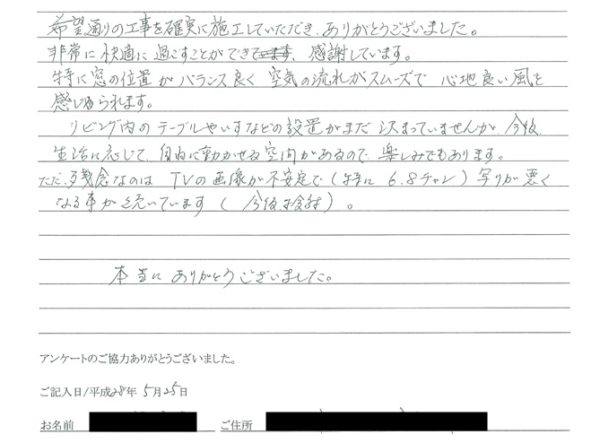 希望通りの工事を確実に施工していただき、ありがとうございました。
非常に快適に過ごすことができて、感謝しています。
特に窓の位置がバランス良く空気の流れがスムーズで心地良い風を
感じられます。
リビング内のテーブルやいすなどの設置がまだ決まっていませんが、今後、
生活に応じて、自由に動かせる空間があるので楽しみでもあります。
ただ、残念なのはTVの画像が不安定で(特に6.8チャンネル)写りが悪く
なる事が続いています(今後検討)。
本当にありがとうございました。
アンケートのご協力ありがとうございました。
ご記入日/平成28年5月25日
お名前 ご住所